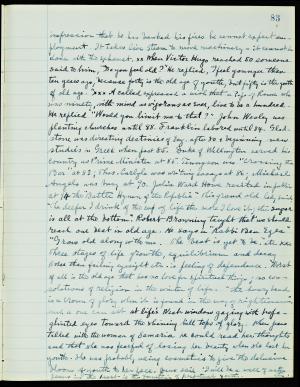 83
impression that he has banked his fires he cannot expect em-
ployment. It takes live steam to move machinery - it cannot be
done with the exhaust. xx When Victor Hugo reached 80 someone
said to him, "Do you feel old?" He replied, "I feel younger than
ten years ago, because forty is the old age of youth, but fifty is the youth
of old age." xxx A called expressed a wish that a Pope of Rome who
was ninety, with mind as vigorous as ever, live to be a hundred.
He replied "Would you limit me to that?" John Wesley was
planting churches until 88. Franklin labored until 84. Glad-
stone was directing destinies of Eng. after 80 & beginning new
studies in Greek when past 85. Duke of Wellington served his
country as Prime Minister at 80. Tennyson was "Crossing the
Bar" at 83, Thos. Carlyle was writing essays at 85, Michael
Angelo was busy at 90. Julia Ward Howe recited in public
at the Battle Hymn of the Republic.
the deeper I drink of the cup of life the sweeter it is - the sugar
is all at the bottom." Robert Browning taught that we should
reach our best in old age. He says in "Rabbi Ben Ezra"
"Grow old along with me. The best is yet to be, etc. xxx
Three stages of life growth, equilibrium and decay
Over the gaining eight etc. is feeling of dependence. Worst
of all is the old age that has no love for spiritual things, no con-
solations of religion in the winter of life. - the hoary head
is a crown of glory when it is found in the way of righteousness
and a one can set at life's West window gazing with un-
glinted eyes toward the shining hill tops of glory. When Jesus
talked with the woman of Samaria he read her thoughts
and that she was fearful of losing her beauty when she lost her
youth. She was probably using cosmetics to give the delusive
bloom of youth to her face. Jesus said "I will be a well of water